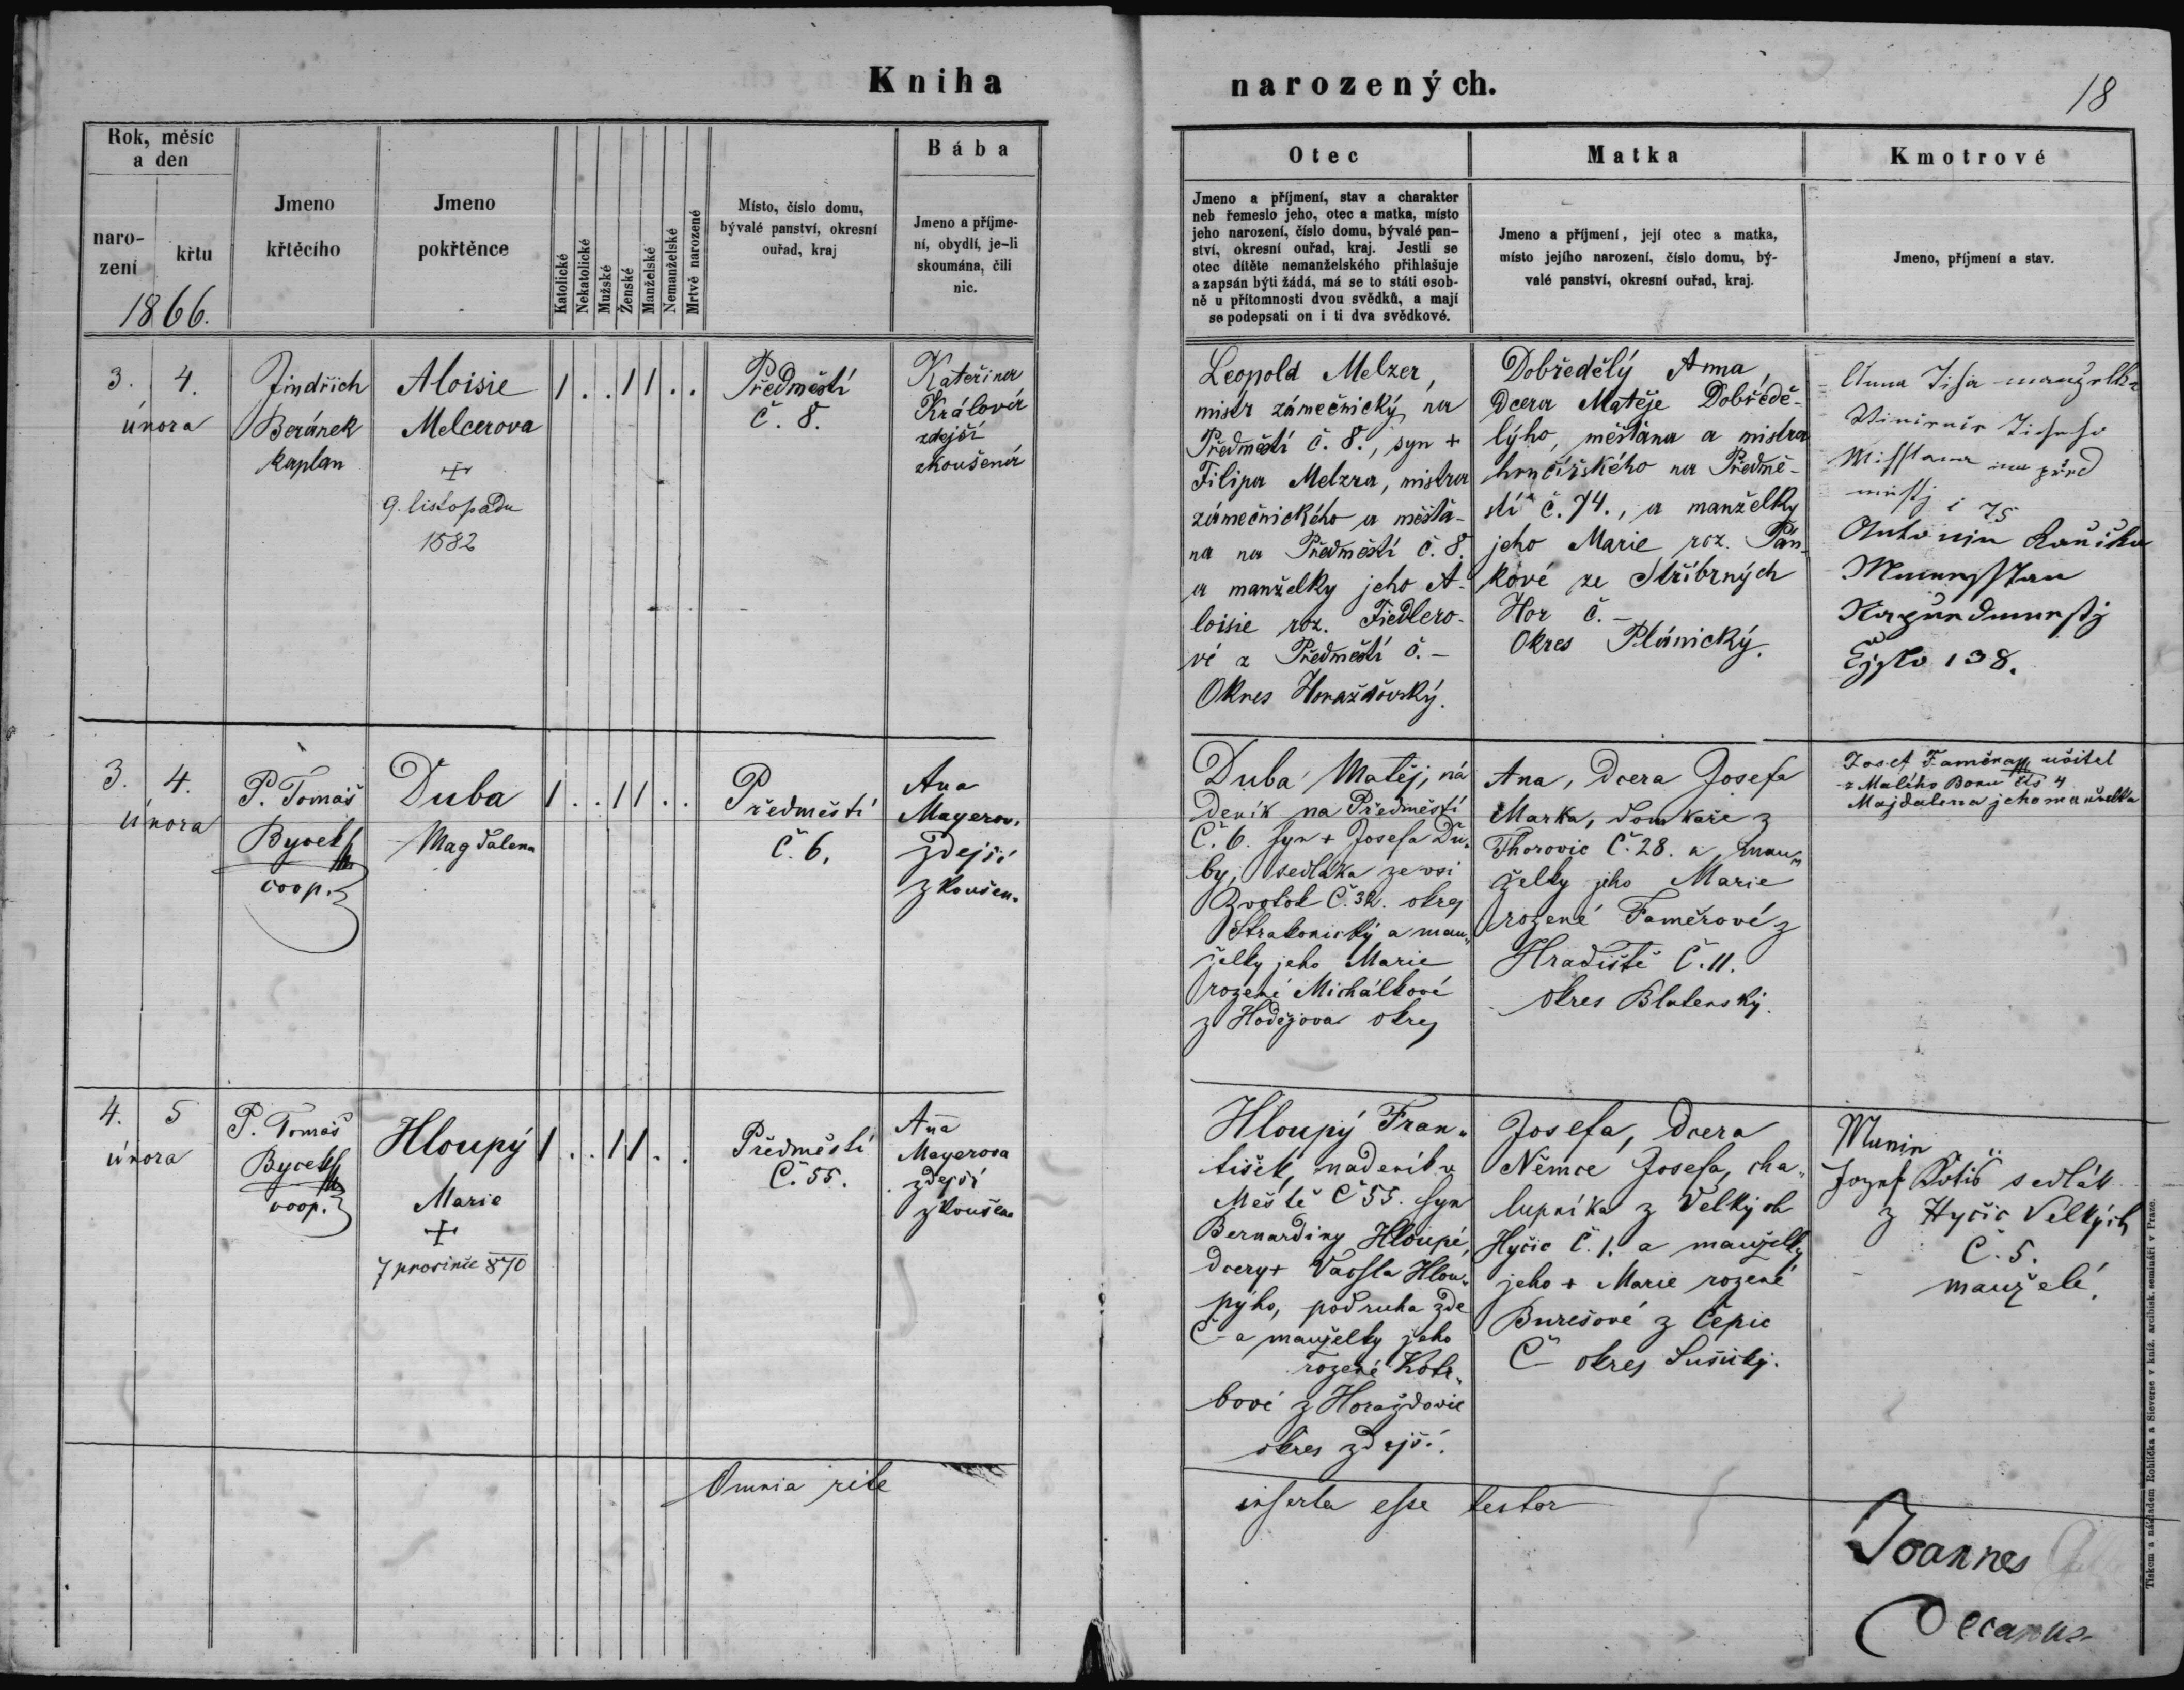 Kniha
narozených.
18
Rok, měsíc
a den
naro-
zení
křtu
1866.
Jmeno
křtěcího
Jmeno
pokřtěnce
Katolické
Nekatolické
Mužské
Ženské
Manželské
Nemanželské
Mrtvě narozené
Místo, číslo domu,
bývalé panství, okresní
ouřad, kraj
Bába
Jmeno a příjme-
ní, obydlí, je-li
skoumána, čili
nic.
Otec
Jmeno a příjmení, stav a charakter
neb řemeslo jeho, otec a matka, místo
jeho narození, číslo domu, bývalé pan-
ství, okresní ouřad, kraj. Jestli se
otec dítěte nemanželského přihlašuje
a zapsán býti žádá, má se to státi osob-
ně u přítomnosti dvou svědků, a mají
se podepsati on i ti dva svědkové.
Matka
Jmeno a příjmení, její otec a matka,
místo jejího narození, číslo domu, bý-
valé panství, okresní ouřad, kraj.
Kmotrové
Jmeno, příjmení a stav.
3. 4.
února
Jindřich
Beránek
kaplan
Aloisie
Melcerova
+
9. listopadu
1882
1 . . 1 1 . .
Předměstí
č. 8.
Kateřina
Králová
zdejší
zkoušená
Leopold Melzer,
mistr zámečnický na
Předměstí č. 8., syn +
Filipa Melzra, mistra
zámečnického a měšťa-
na na Předměstí č. 8.
a manželky jeho A-
loisie roz. Fiedlero-
vé z Předměstí č. –
Okres Horažďovský.
Dobředělý Anna,
dcera Matěje Dobředě-
lýho, měšťana a mistra
hrnčířského na Předmě-
stí č. 74., a manželky
jeho Marie roz. Pán-
kové ze Stříbrných
Hor č. –
Okres Plánický.
Anna Tichá manželka
č 75
Antonin
138.
3. 4.
února
P. Tomáš
Bycek
coop.
Duba
Magdalena
1 . . 1 1 . .
Předměstí
č. 6.
Ana
Mayerov.
zdejší
zkoušen.
Duba Matěj, ná
deník na Předměstí
Č. 6. syn + Josefa Du-
by, sedláka ze vsi
Zvotok Č. 32. okres
Strakonický a man-
želky jeho Marie
rozené Michálkové
z Hodějova okres
Ana, dcera Josefa
Marka, domkaře z
Thorovic Č. 28. a man-
želky jeho Marie
rozené Faměrové z
Hradiště Č. 11.
okres Blatenský.
Josef Faměra učitel
z Malého Boru čís 4
Majdalena jeho manželka
4. 5
února
P. Tomáš
Bycek
coop.
Hloupý
Marie
+
7 prosince 870
1 . . 1 1 . .
Předměstí
Č. 55.
Anna
Mayerova
zdejší
zkoušena
Hloupý Fran-
tišek, nadeník v
Městě Č 55. syn
Bernardiny Hloupé,
dcery + Václa Hlou-
pýho, podruha zde
Č – a manželky jeho
rozené Kotr-
bové z Horažďovic
okres zdejší.
Josefa, dcera
Němce Josefa, cha-
lupníka z Velkých
Hyčic Č. 1. a manželky
jeho + Marie rozené
Burešové z Čepic
Č – okres Sušický.
Josef Kotiš sedlák
z Hyčic Velkých
Č. 5.
manželé.
Omnia rite
inserta esse testor
Joannes
Decanus
Tiskem a nákladem Rohlíčka a Sieverse v kníž. arcibisk. semináři v Praze.